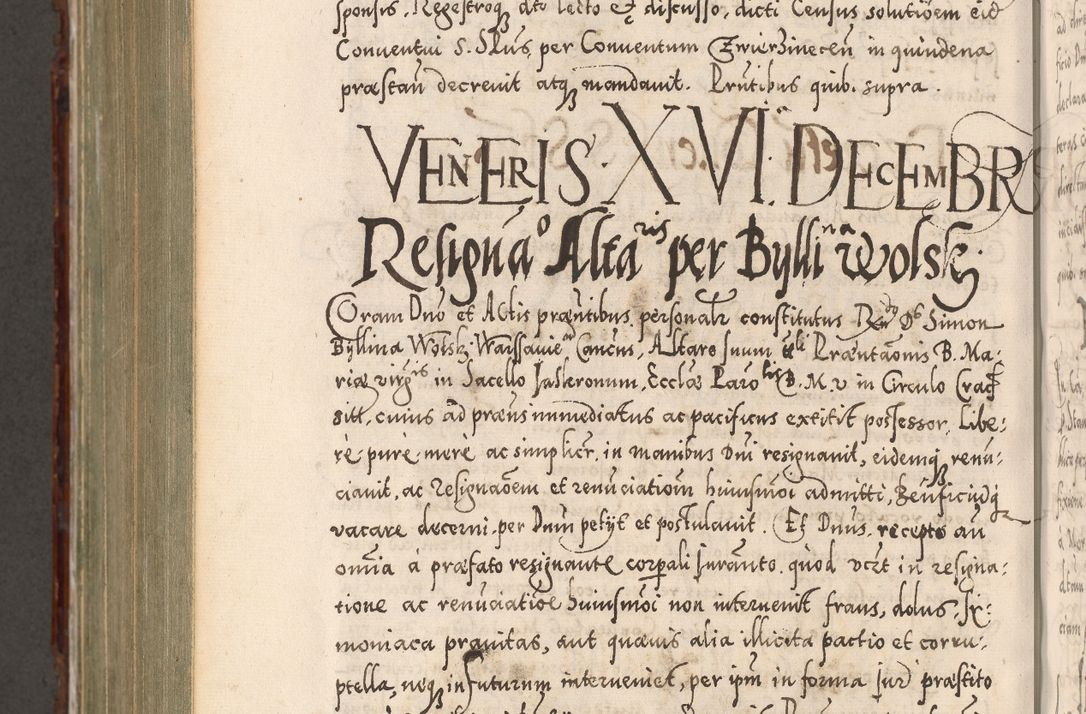 sponsis, Regestroq, dto lecto et discusso, dicti Census solutioem eid
Conventui S. Sptus, per Conventum Zwierzinecen in quindena
præstan decrevit atq mandavit. Prntibus quib. supra.
VENERIS. XVI. DECEMBR
Resigna^o Alta^ris per Bylli^na Wolsky.
Coram Dno et Actis præntibus personalr constitutus Simon
Byllina Wolsky Warssavien Cancus, Altare suum Præntaonis B. Ma:
riæ virgis in Sacello Ecclæ B. M. V in Circulo Crac
sitt, cuius ad præns immediatus ac pacificus extitit possessor, Libe:
re pure mere ac simplicr, in manibus Dni resignavit, eidemq renu:
ciavit, ac resignaoem et renuciatiom huiusmoi admitti, Benficiuq
vacare decerni per Dnm petyt et postulavit. Et Dnus, recepto an
omia à præfato resignante corporali Iuramto, quod in resigna:
tione ac renuciatioe huiusmoi non intervenit fraus, dolus, Si:
moniaca pravitas, aut quævis alia illicita pactio et corru:
ptella, neq in futurum interveniet, per ipm in forma Iur præstito